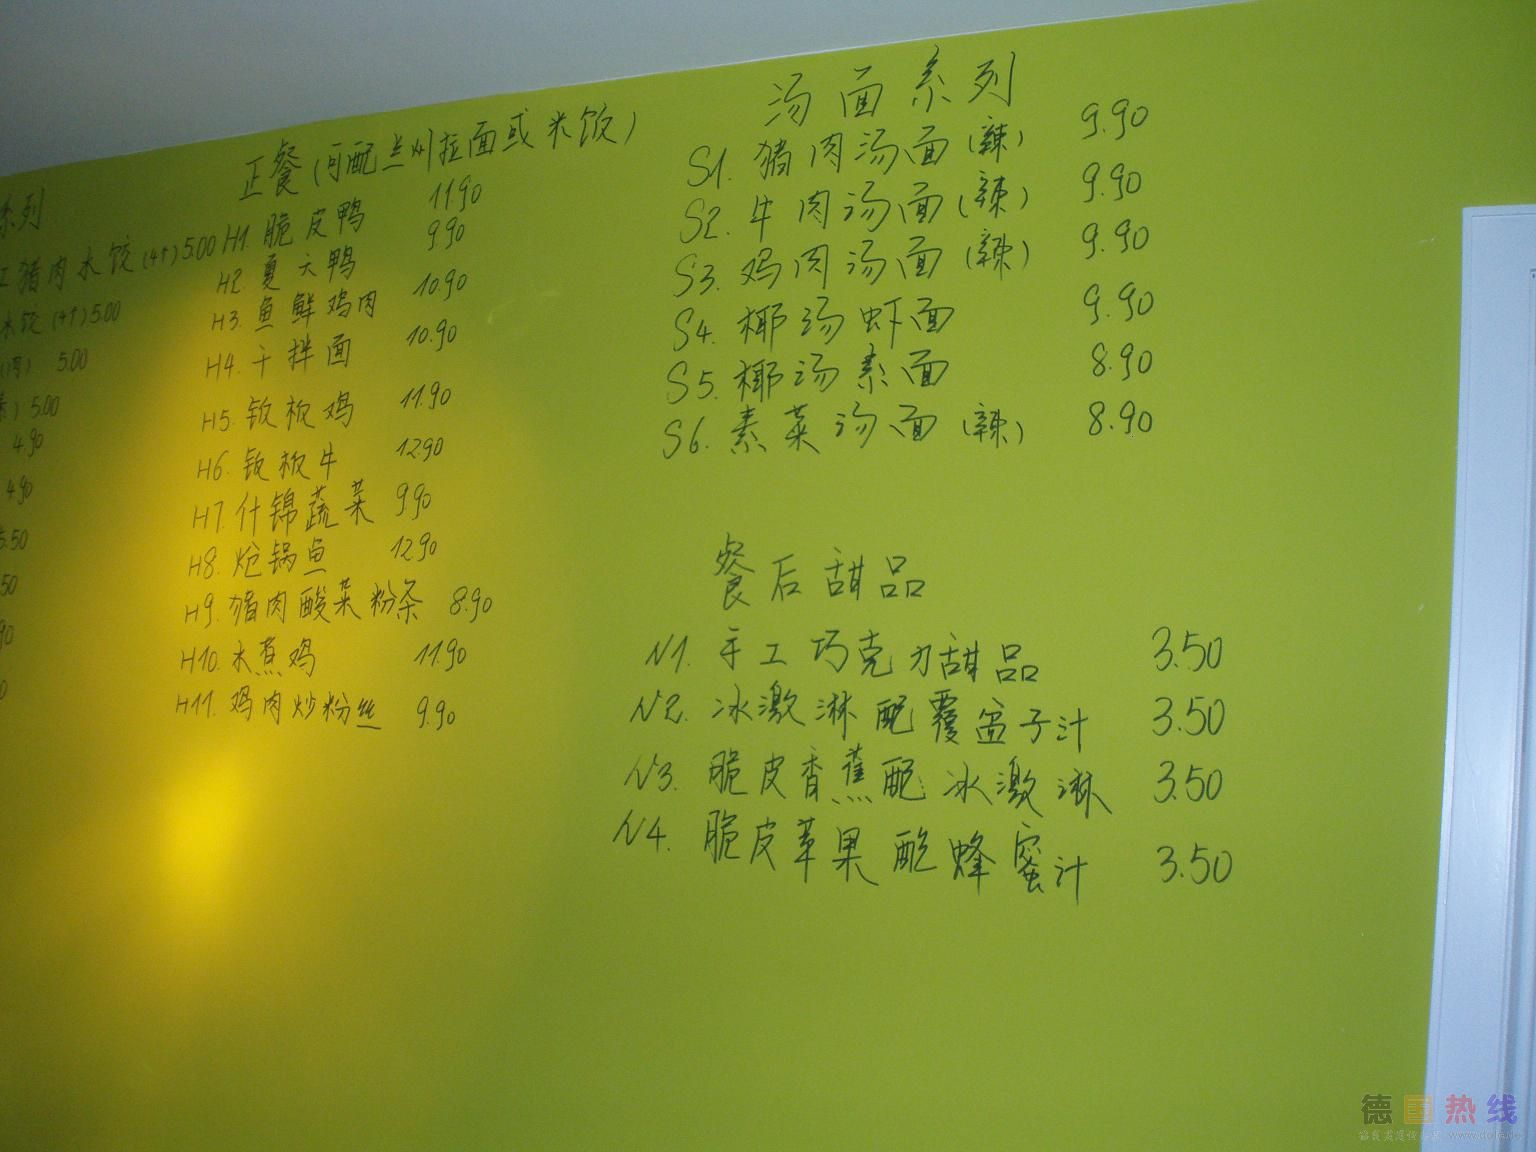 系列
工猪肉水饺(4个)5.00
水饺(4个)5.00
(肉) 5.00
素) 5.00
4.90
4.90
5.50
50
90
0
正餐(可配兰州拉面或米饭)
H1. 脆皮鸭 11.90
H2. 夏天鸭 9.90
H3. 鱼鲜鸡肉 10.90
H4. 干拌面 10.90
H5. 钣板鸡 11.90
H6. 钣板牛 12.90
H7. 什锦蔬菜 9.90
H8. 炝锅鱼 12.90
H9. 猪肉酸菜粉条 8.90
H10. 水煮鸡 11.90
H11. 鸡肉炒粉丝 9.90
汤面系列
S1. 猪肉汤面(辣) 9.90
S2. 牛肉汤面(辣) 9.90
S3. 鸡肉汤面(辣) 9.90
S4. 椰汤虾面 9.90
S5. 椰汤素面 8.90
S6. 素菜汤面(辣) 8.90
餐后甜品
N1. 手工巧克力甜品 3.50
N2. 冰激淋配覆盆子汁 3.50
N3. 脆皮香蕉配冰激淋 3.50
N4. 脆皮苹果配蜂蜜汁 3.50
德国热线